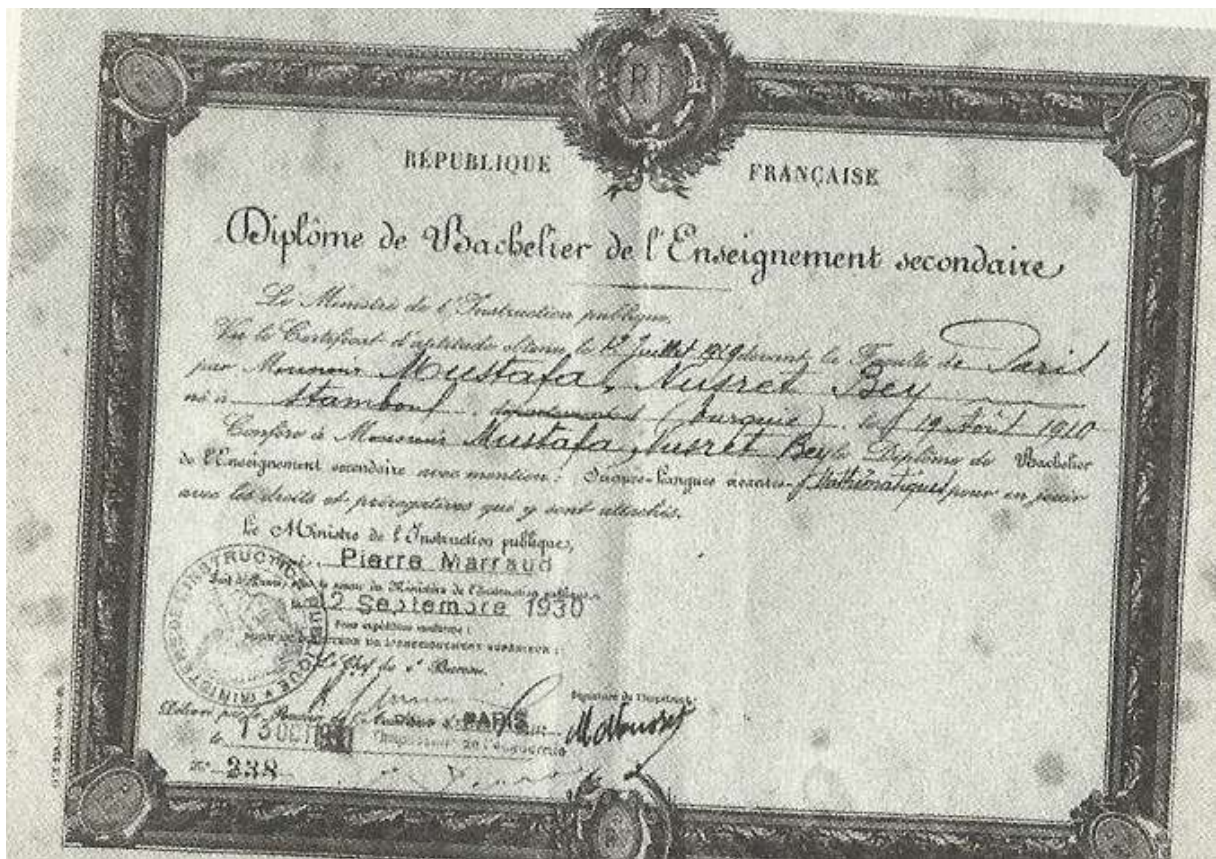 RF
RÉPUBLIQUE FRANÇAISE
Diplôme de Bachelier de l'Enseignement secondaire
Le Ministre de l'Instruction publique,
Vu le Certificat d'aptitude obtenu le 12 Juillet 1929 devant la Faculté de Paris
par Monsieur Mustafa, Nusret Bey
né à Stamboul, département (Turquie) le 19 Août 1910
Confère à Monsieur Mustafa, Nusret Bey le Diplôme de Bachelier
de l'Enseignement secondaire avec mention: Sciences-Langues vivantes-Mathématiques pour en jouir
avec les droits et prérogatives qui y sont attachés.
Le Ministre de l'Instruction publique,
Pierre Marraud
sous le sceau du Ministère de l'Instruction publique
le 2 Septembre 1930
Pour expédition conforme:
DE L'ENSEIGNEMENT SUPÉRIEUR:
Le Chef du Bureau.
MINISTÈRE DE L'INSTRUCTION PUBLIQUE
Signature de l'impétrant:
Délivré par PARIS
le 13 OCT
l'Académie
N° 238